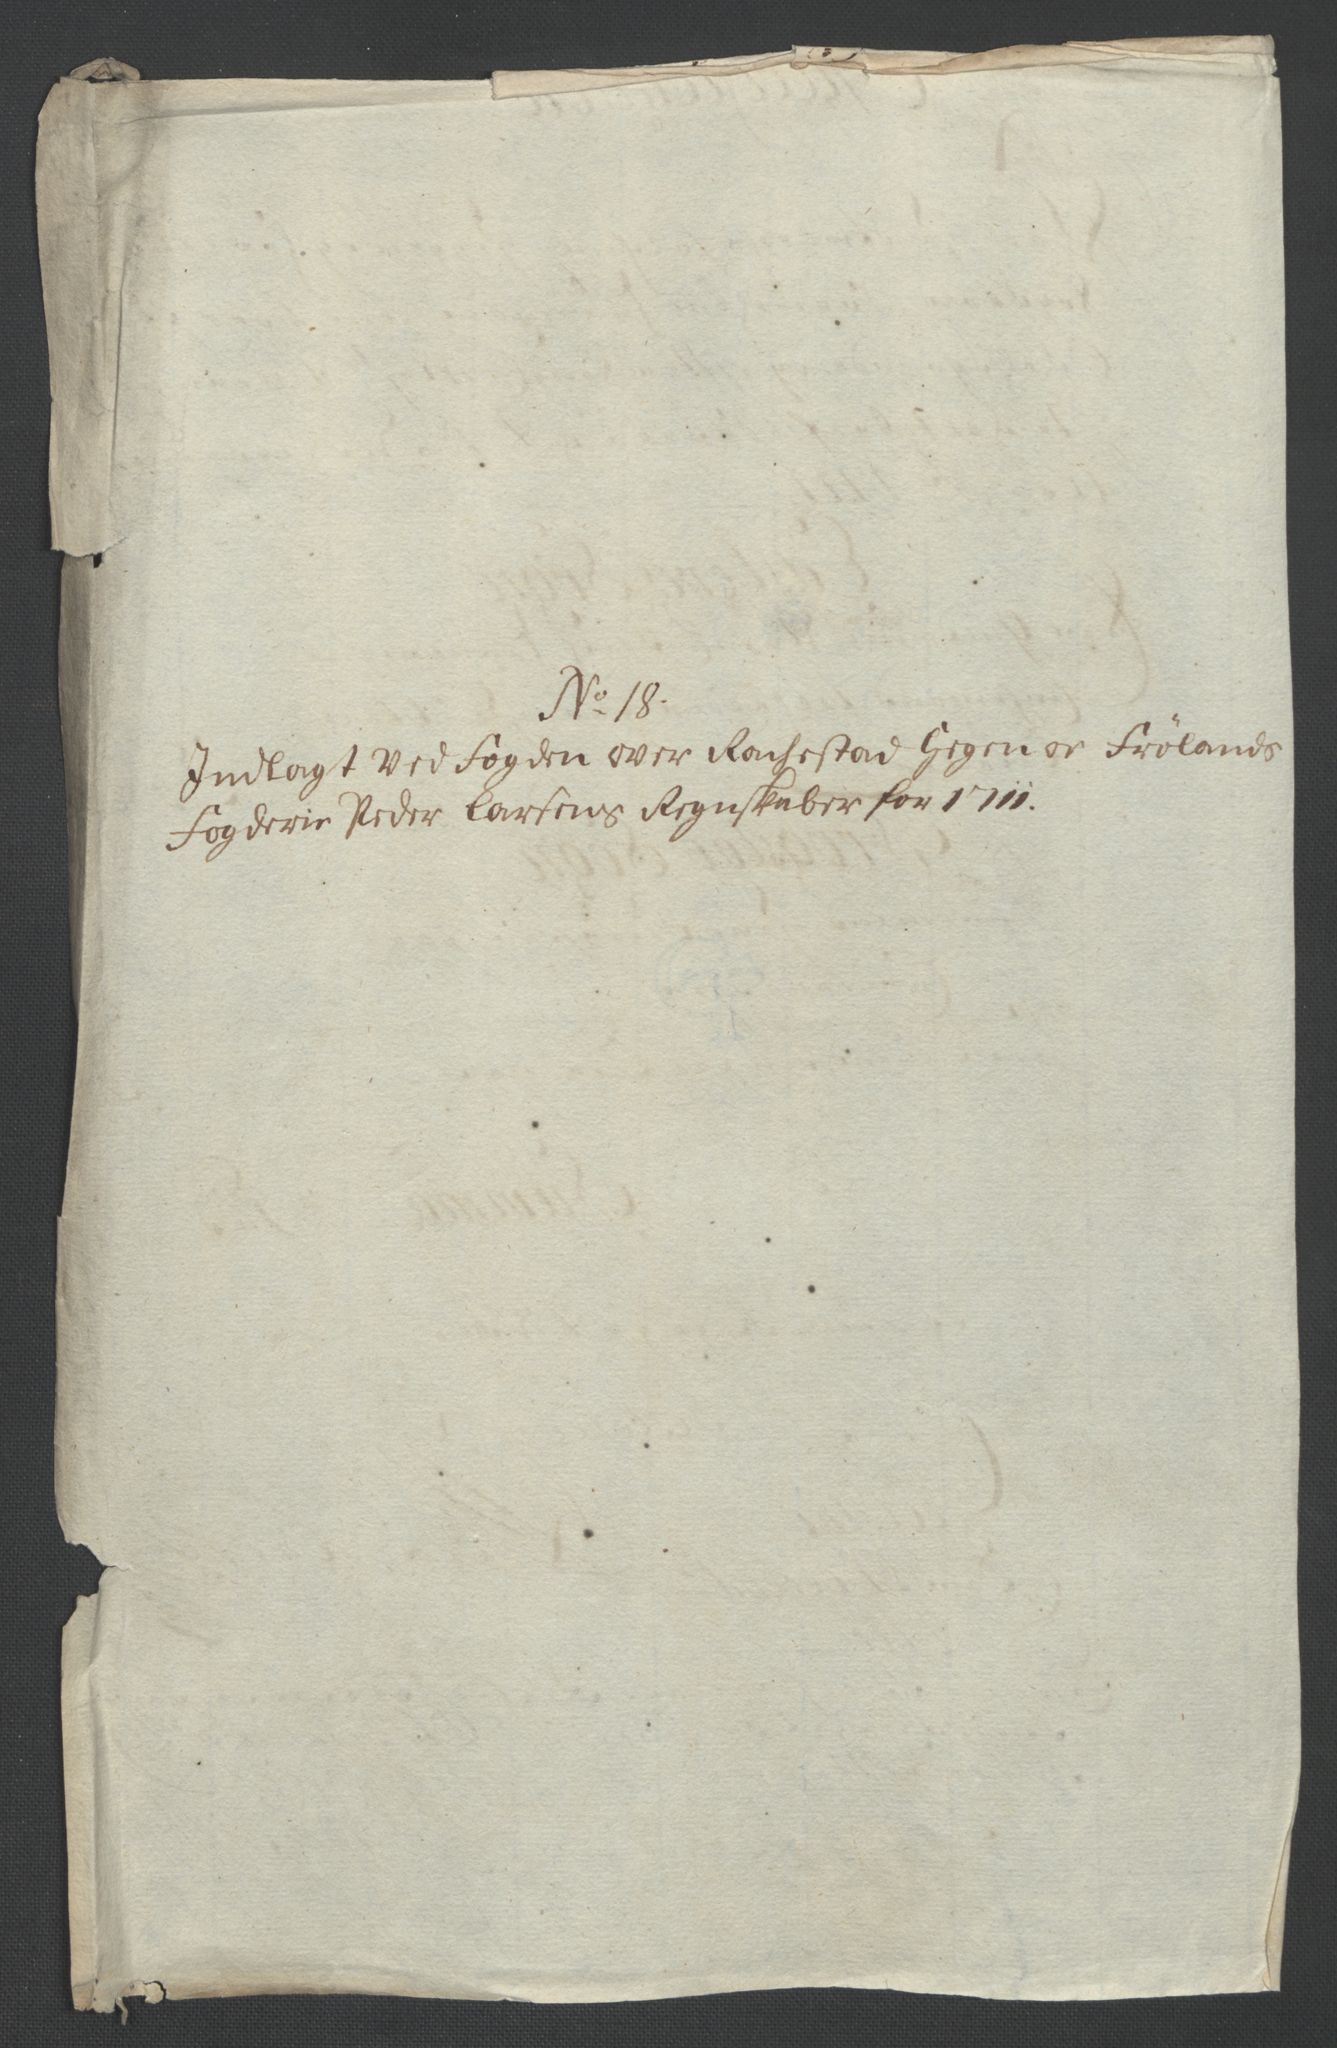 No 18.
Indlagt Ved Fogden over Rachestad Hegen oc Frölands
Fogderie Peder Larsens Regnskaber for 1711.